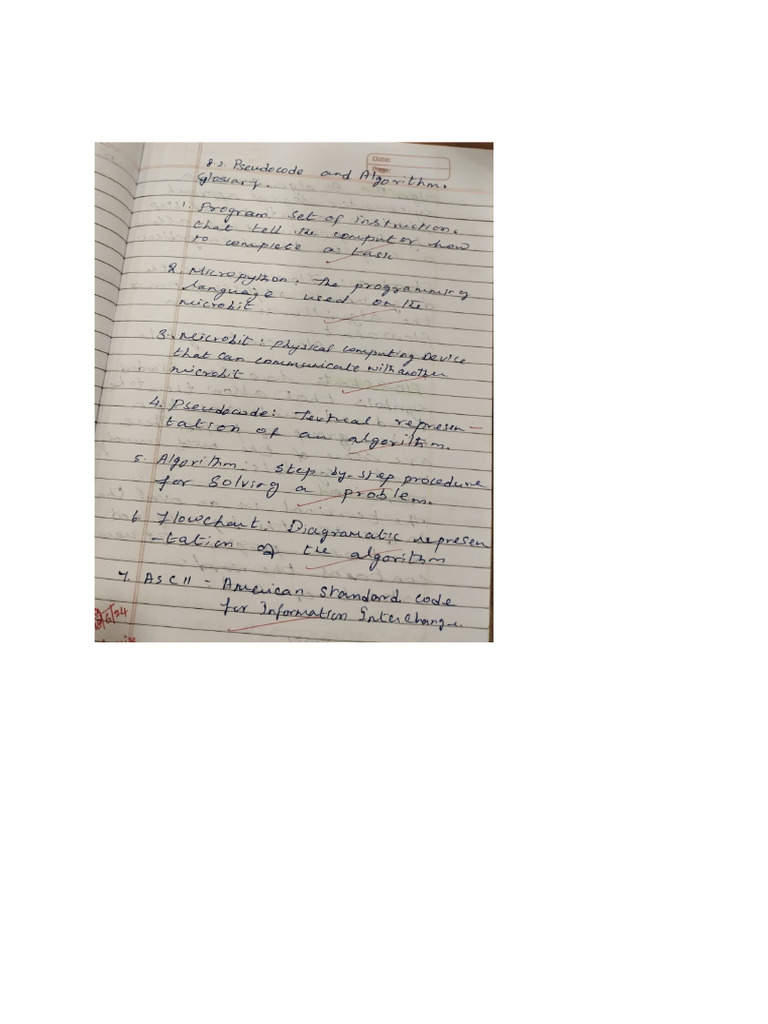 Date:
Page:
8.2. Pseudocode and Algorithm.
Glossary.
1. Program: set of instructions
that tell the computer how
to complete a task
2. Micropython: The programming
language used on the
microbit
3. Microbit: physical computing Device
that can communicate with another
microbit
4. Pseudocode: Textual represen-
tation of an algorithm.
5. Algorithm: Step-by-step procedure
for solving a problem.
6 Flowchart: Diagramatic represen
-tation of the algorithm
7. ASCII - American Standard code
for Information Interchange.
6/24